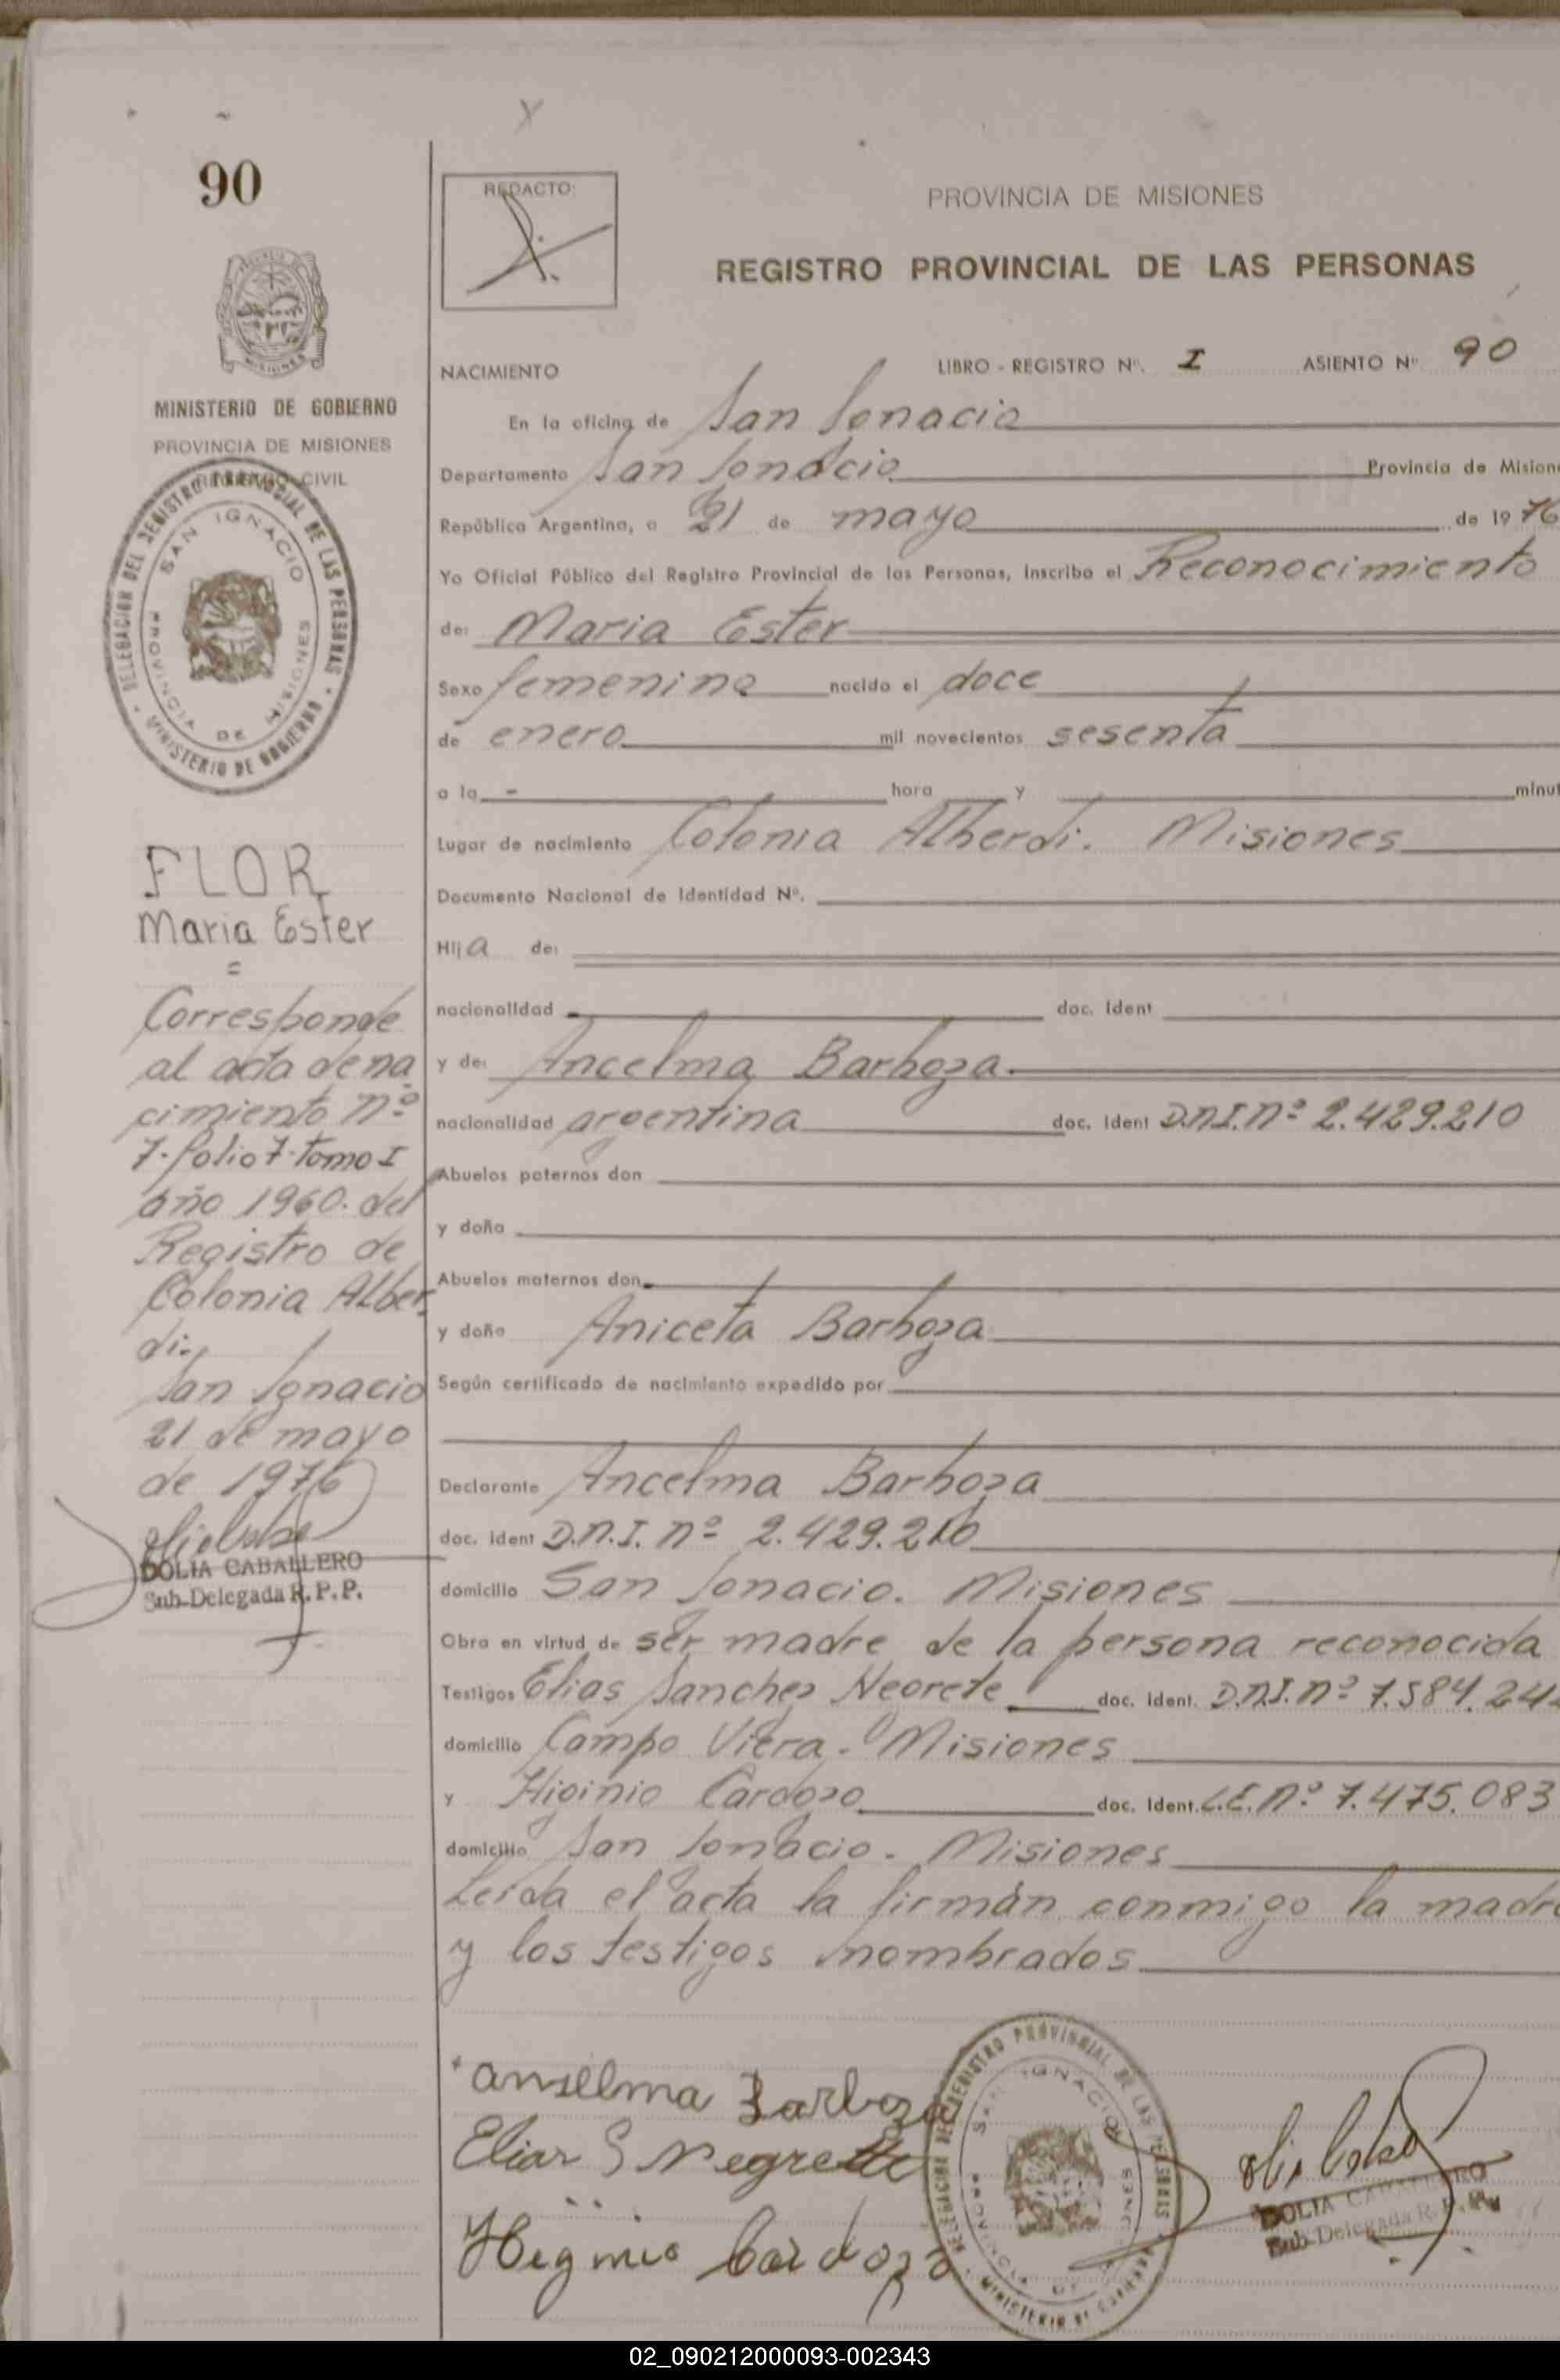 90
MINISTERIO DE GOBIERNO
PROVINCIA DE MISIONES
REGISTRO CIVIL
DELEGACION DEL REGISTRO PROVINCIAL DE LAS PERSONAS
MINISTERIO DE GOBIERNO
SAN IGNACIO
PROVINCIA DE MISIONES
FLOR
Maria Ester
=
Corresponde
al acta de na
cimiento nº
7. folio 7. Tomo I
año 1960. del
Registro de
Colonia Alber
di.
San Ignacio
21 de mayo
de 1976
DOLIA CABALLERO
Sub-Delegada R.P.P.
REDACTO:
PROVINCIA DE MISIONES
REGISTRO PROVINCIAL DE LAS PERSONAS
NACIMIENTO LIBRO - REGISTRO Nº. I ASIENTO Nº 90
En la oficina de San Ignacio
Departamento San Ignacio Provincia de Mision
República Argentina, a 21 de mayo de 1976
Yo Oficial Público del Registro Provincial de las Personas, inscribo el Reconocimiento
de: Maria Ester
Sexo femenino nacido el doce
de enero mil novecientos sesenta
a la - hora y minut
Lugar de nacimiento Colonia Alberdi. Misiones
Documento Nacional de Identidad Nº.
Hija de:
nacionalidad doc. ident
y de: Ancelma Barboza.
nacionalidad argentina doc. ident D.N.I. nº 2.429.210
Abuelos paternos don
y doña
Abuelos maternos don
y doña Aniceta Barboza
Según certificado de nacimiento expedido por
Declarante Ancelma Barboza
doc. ident D.N.I. nº 2.429.210
domicilio San Ignacio. Misiones
Obra en virtud de ser madre de la persona reconocida
Testigos Elias Sanchez Negrete doc. ident. D.N.I. nº 7.584.24
domicilio Campo Viera. Misiones
y Higinio Cardozo doc. ident. L.E. nº 7.475.083
domicilio San Ignacio. Misiones
Leída el acta la firmán conmigo la madre
y los testigos nombrados
anselma Barboza
Elias S Negrette
Higinio Cardozo
DELEGACION DEL REGISTRO PROVINCIAL DE LAS PERSONAS
MINISTERIO DE GOBIERNO
SAN IGNACIO
PROVINCIA DE MISIONES
DOLIA CABALLERO
Sub-Delegada R.P.P.
02_090212000093-002343